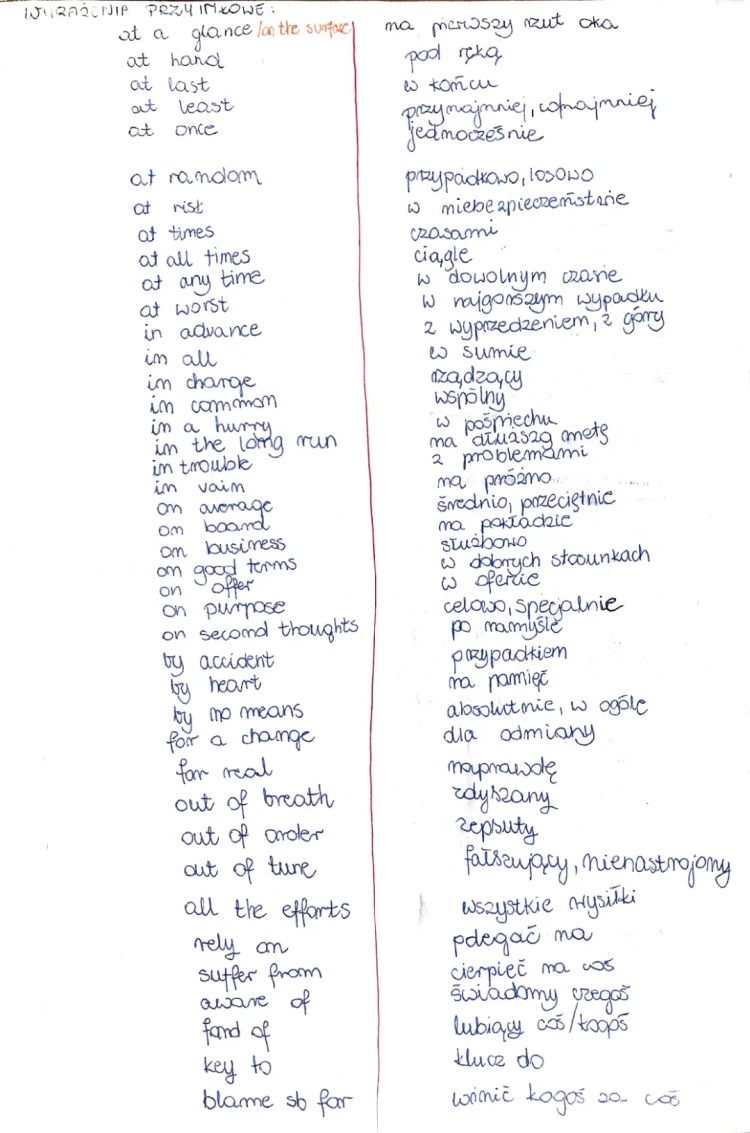 WYRAŻENIA PRZYIMKOWE:
at a glance /on the surface na pierwszy rzut oka
at hand pod ręką
at last w końcu
at least przynajmniej, conajmniej
at once jednocześnie
at random przypadkowo, losowo
at risk w niebezpieczeństwie
at times czasami
at all times ciągle
at any time w dowolnym czasie
at worst w najgorszym wypadku
in advance z wyprzedzeniem, z góry
in all w sumie
in charge rządzący
in common wspólny
in a hurry w pośpiechu
in the long run na dłuższą metę
in trouble z problemami
in vain na próżno
on average średnio, przeciętnie
on board na pokładzie
on business służbowo
on good terms w dobrych stosunkach
on offer w ofercie
on purpose celowo, specjalnie
on second thoughts po namyśle
by accident przypadkiem
by heart na pamięć
by no means absolutnie, w ogóle
for a change dla odmiany
for real naprawdę
out of breath zdyszany
out of order zepsuty
out of tune fałszujący, nienastrojony
all the efforts wszystkie wysiłki
rely on polegać na
suffer from cierpieć na coś
aware of świadomy czegoś
fond of lubiący coś/kogoś
key to klucz do
blame sb for winić kogoś za coś